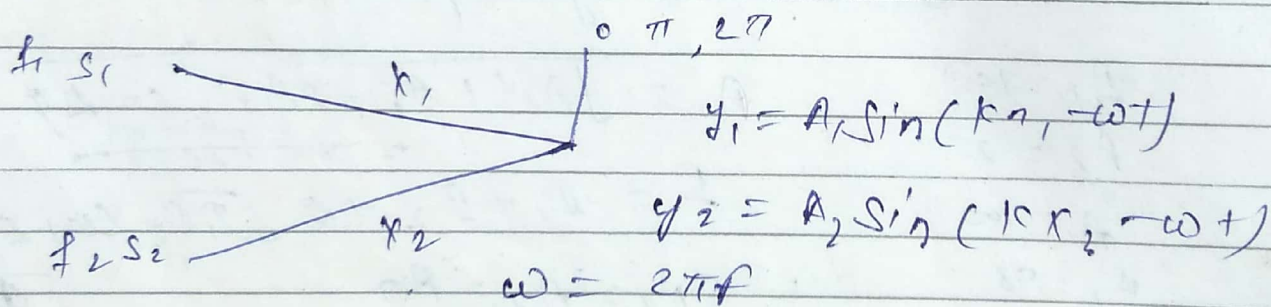 0 π, 2π
f₁ S₁ x₁
y₁ = A₁ sin(kx₁ - ωt)
y₂ = A₂ sin(kx₂ - ωt)
f₂ S₂ x₂
ω = 2πf